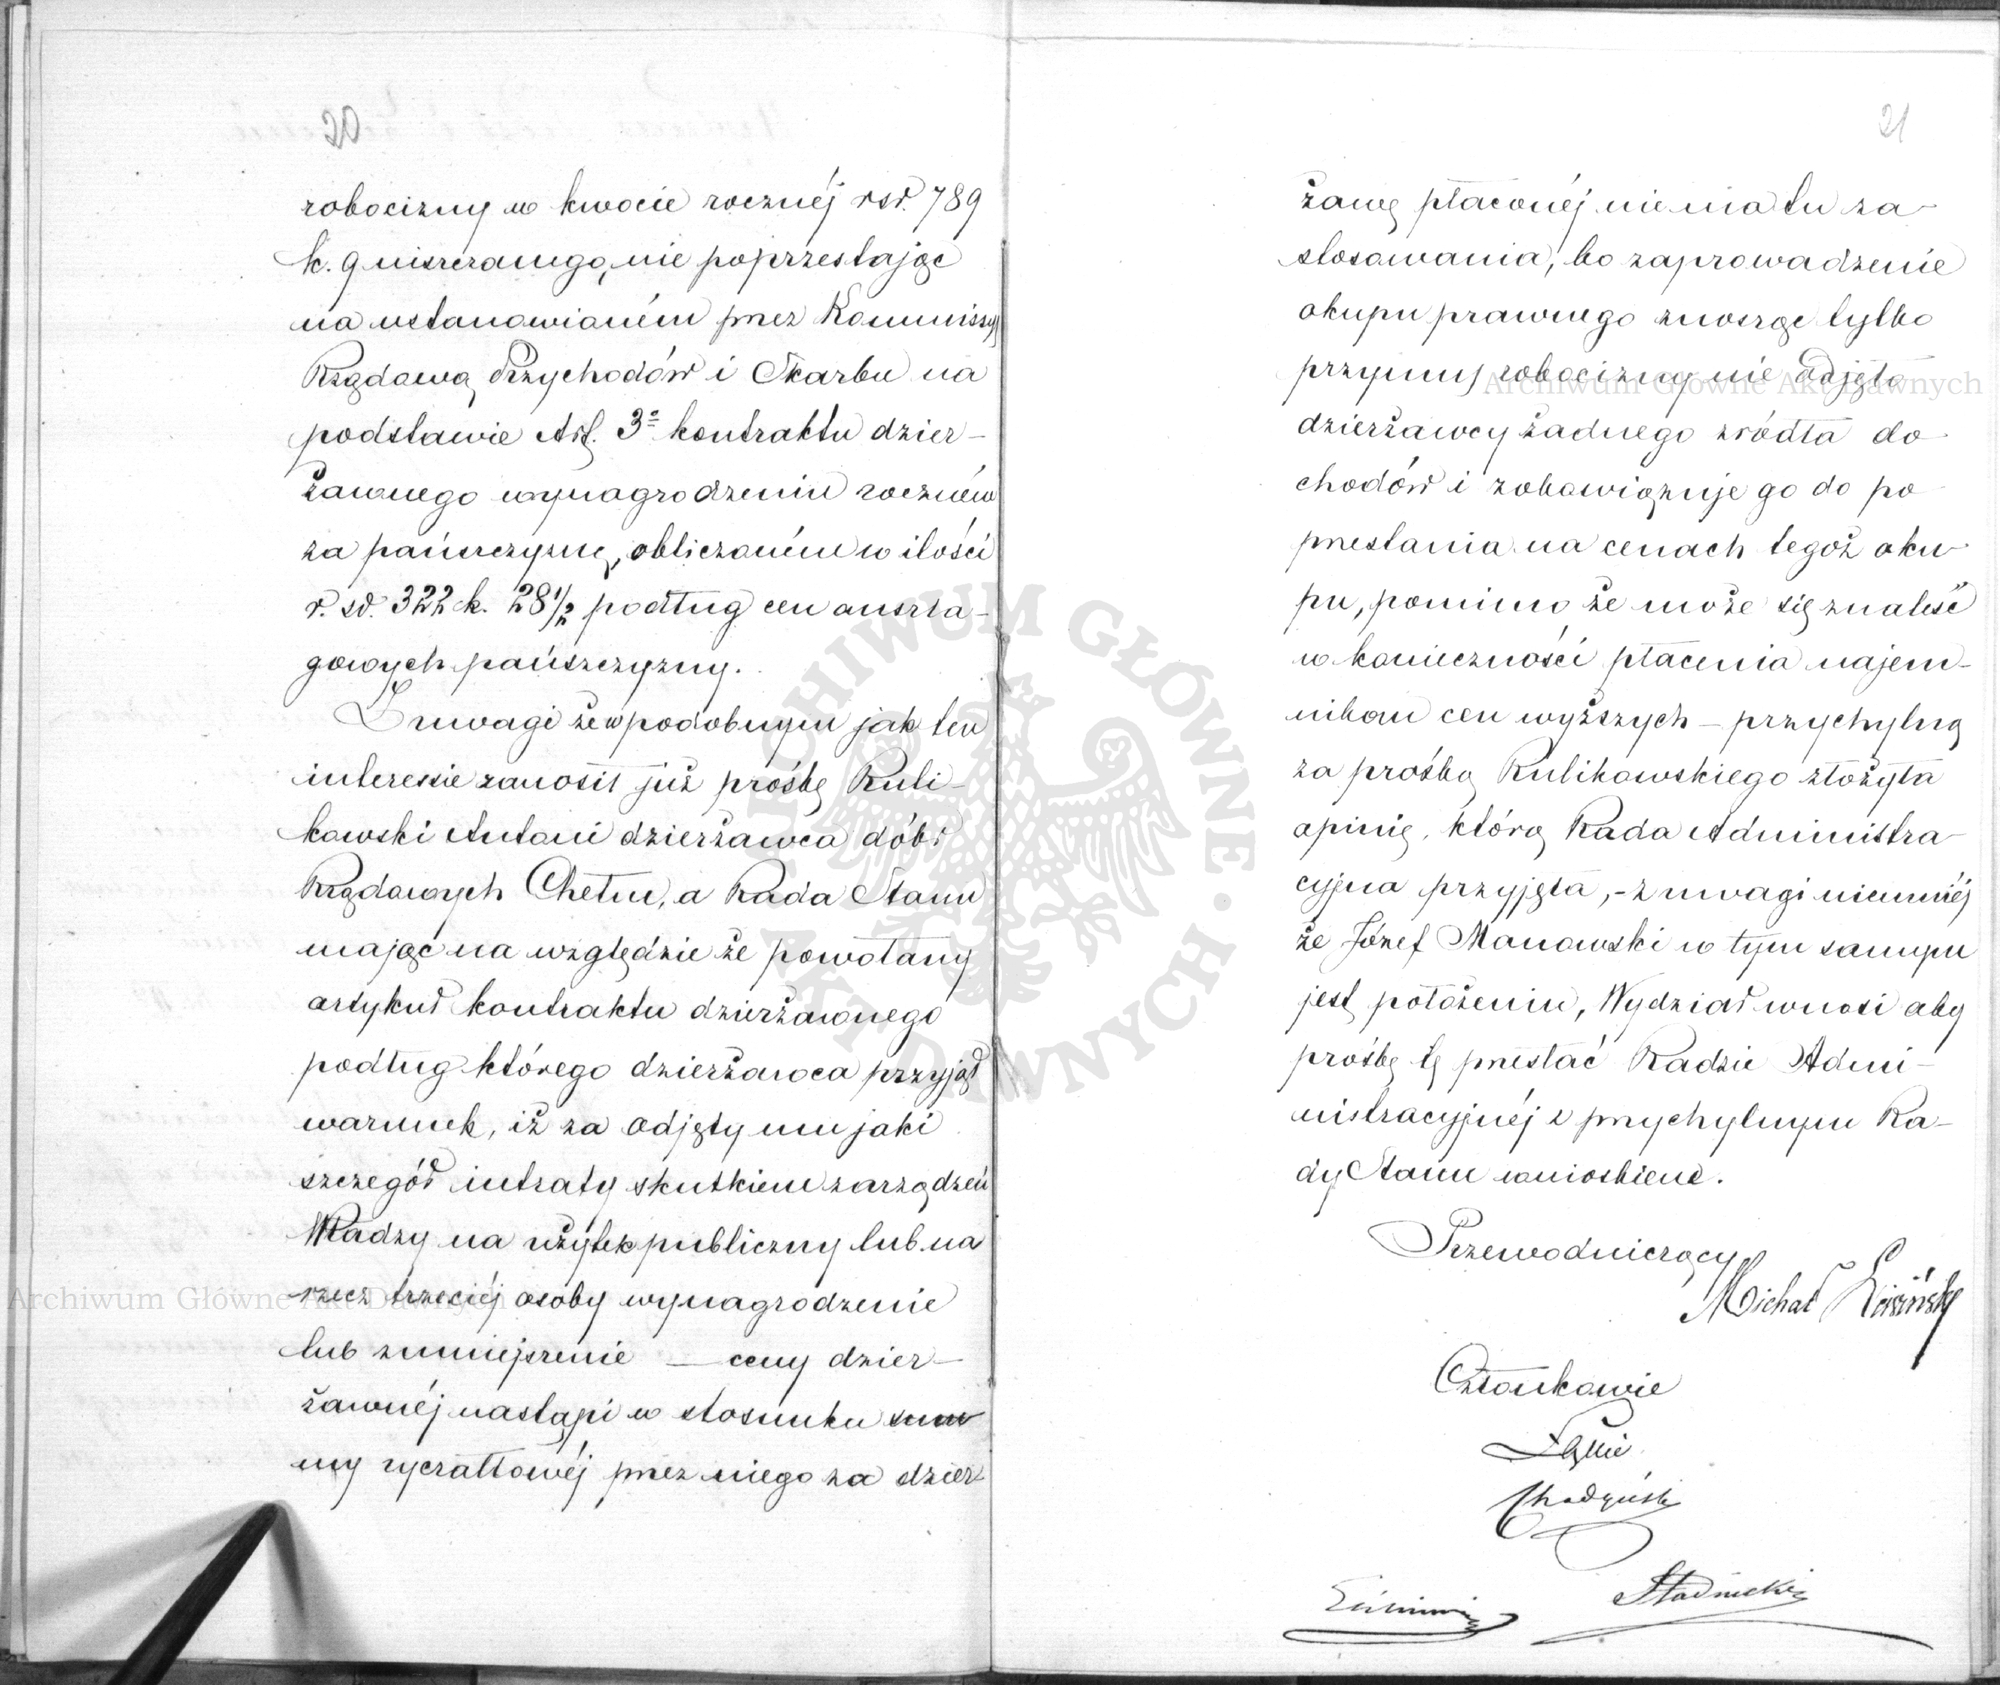 20
robocizny w kwocie rocznéj rsr. 789
k. 9 uiszczanego, nie poprzestając
na ustanowioném przez Kommissyą
Rządową Przychodów i Skarbu na
podstawie Art. 3º kontraktu dzier-
żawnego wynagrodzeniu roczném
za pańszczyznę, obliczoném w ilości
r. sr. 322 k. 28 1/2 podług cen anszla-
gowych pańszczyzny.
Z uwagi że w podobnym jak ten
interessie zanosił już prośbę Kuli-
kowski Antoni dzierżawca dóbr
Rządowych Chełm, a Rada Stanu
mając na względzie że powołany
artykuł kontraktu dzierżawnego
podług którego dzierżawca przyjął
warunek, iż za odjęty mu jaki
szczegół intraty skutkiem zarządzeń
Władzy na użytek publiczny lub na
rzecz trzeciéj osoby wynagrodzenie
lub zmniejszenie — ceny dzier-
żawnéj nastąpi w stosunku sum
my ryczałtowéj przez niego za dzier-
21
żawę płaconéj nie ma tu za-
stosowania, bo zaprowadzenie
okupu prawnego znosząc tylko
przymus robocizny nie odjęło
dzierżawcy żadnego źródła do-
chodów i zobowiązuje go do po-
przestania na cenach tegoż oku-
pu, pomimo że może się znaleść
w konieczności płacenia najem-
nikom cen wyższych — przychylną
za prośbą Kulikowskiego złożyła
opinię, którą Rada Administra-
cyjna przyjęła, - z uwagi niemniéj
że Józef Manowski w tym samym
jest położeniu, Wydział wnosi aby
prośbę tę przesłać Radzie Admi-
nistracyjnéj z przychylnym Ra-
dy Stanu wnioskiem.
Przewodniczący
Michał
Członkowie
Stadnicki
Archiwum Główne Akt Dawnych
Archiwum Główne Akt Dawnych
ARCHIWUM GŁÓWNE AKT DAWNYCH